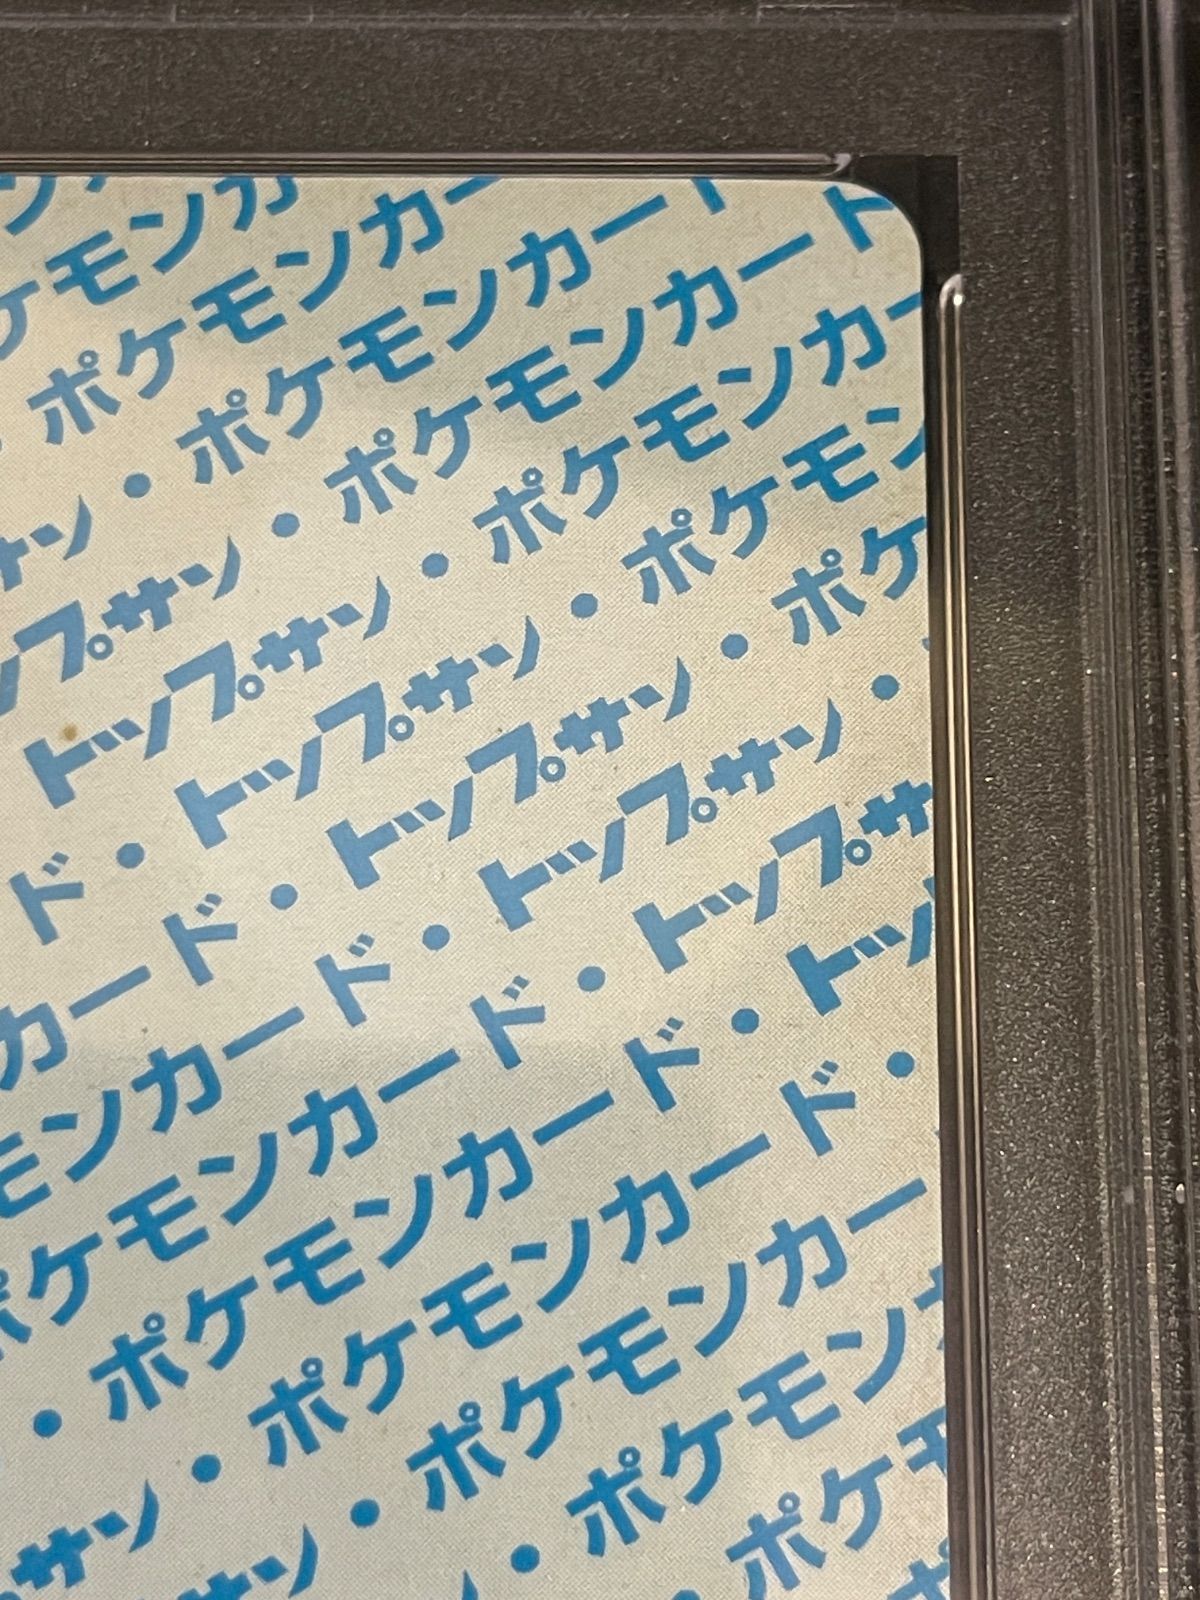 ケモンカ
・ポケモンカー
サン・ポケモンカード
ップサン・ポケモンカード
トップサン・ポケモンカー
ド・トップサン・ポケモン
カード・トップサン・ポケ
モンカード・トップサン・
ポケモンカード・トップサ
・ポケモンカード・トッ
サン・ポケモンカード・
サン・ポケモンカー
・ポケモン
・ポケモ